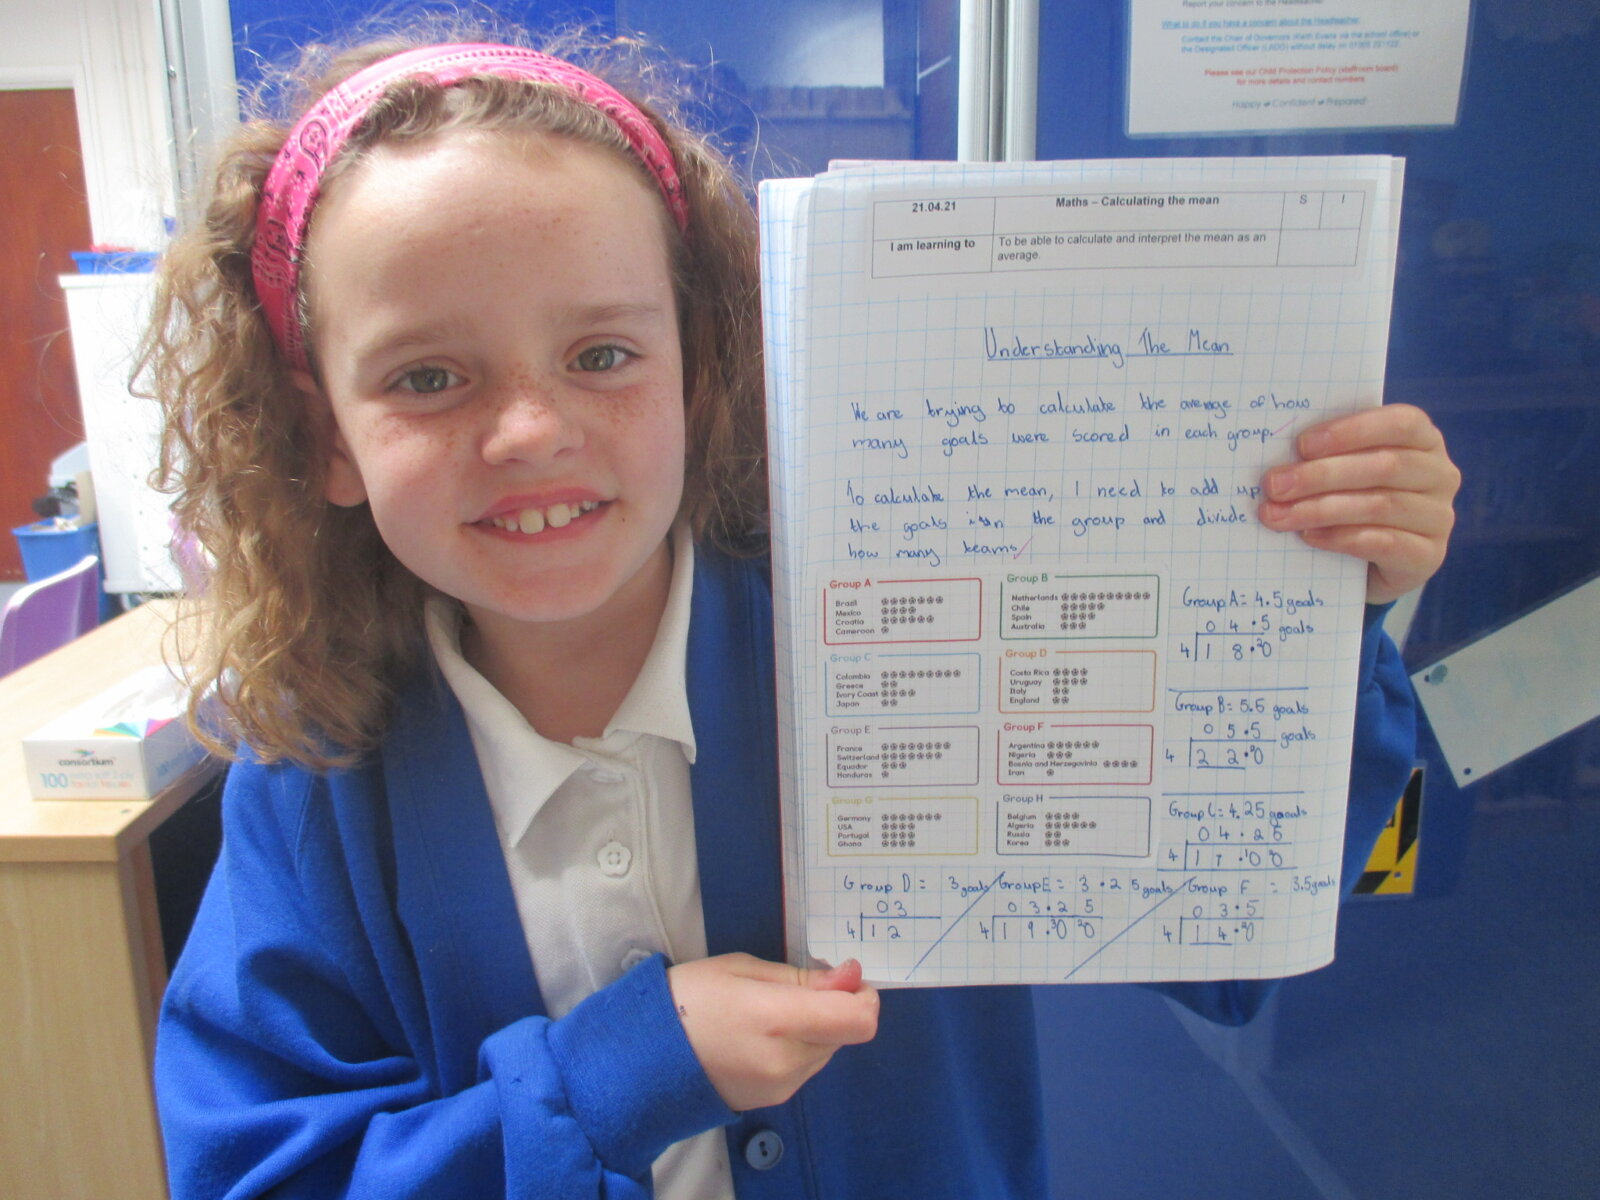 Report your concern to the Headteacher.
What to do if you have a concern about the Headteacher:
Contact the Chair of Governors (Keith Evans via the school office) or
the Designated Officer (LADO) without delay on
Please see our Child Protection Policy (staffroom board)
for more details and contact numbers
Happy Confident Prepared
21.04.21 Maths – Calculating the mean S I
I am learning to To be able to calculate and interpret the mean as an
average.
Understanding The Mean
We are trying to calculate the average of how
many goals were scored in each group.
To calculate the mean, I need to add up
the goals in the group and divide
how many teams
Group A
Brazil
Mexico
Croatia
Cameroon
Group B
Netherlands
Chile
Spain
Australia
Group A = 4.5 goals
0 4.5 goals
4 1 8.20
Group C
Colombia
Greece
Ivory Coast
Japan
Group D
Costa Rica
Uruguay
Italy
England
Group B = 5.5 goals
0 5.5 goals
4 2 2.20
Group E
France
Switzerland
Equador
Honduras
Group F
Argentina
Nigeria
Bosnia and Herzegovinia
Iran
Group G
Germany
USA
Portugal
Ghana
Group H
Belgium
Algeria
Russia
Korea
Group C = 4.25 goals
0 4.25
4 1 7.10 20
Group D = 3 goals
0 3
4 1 2
Group E = 3.25 goals
0 3.25
4 1 9.30 20
Group F = 3.5 goals
0 3.5
4 1 4.20
consortium
100